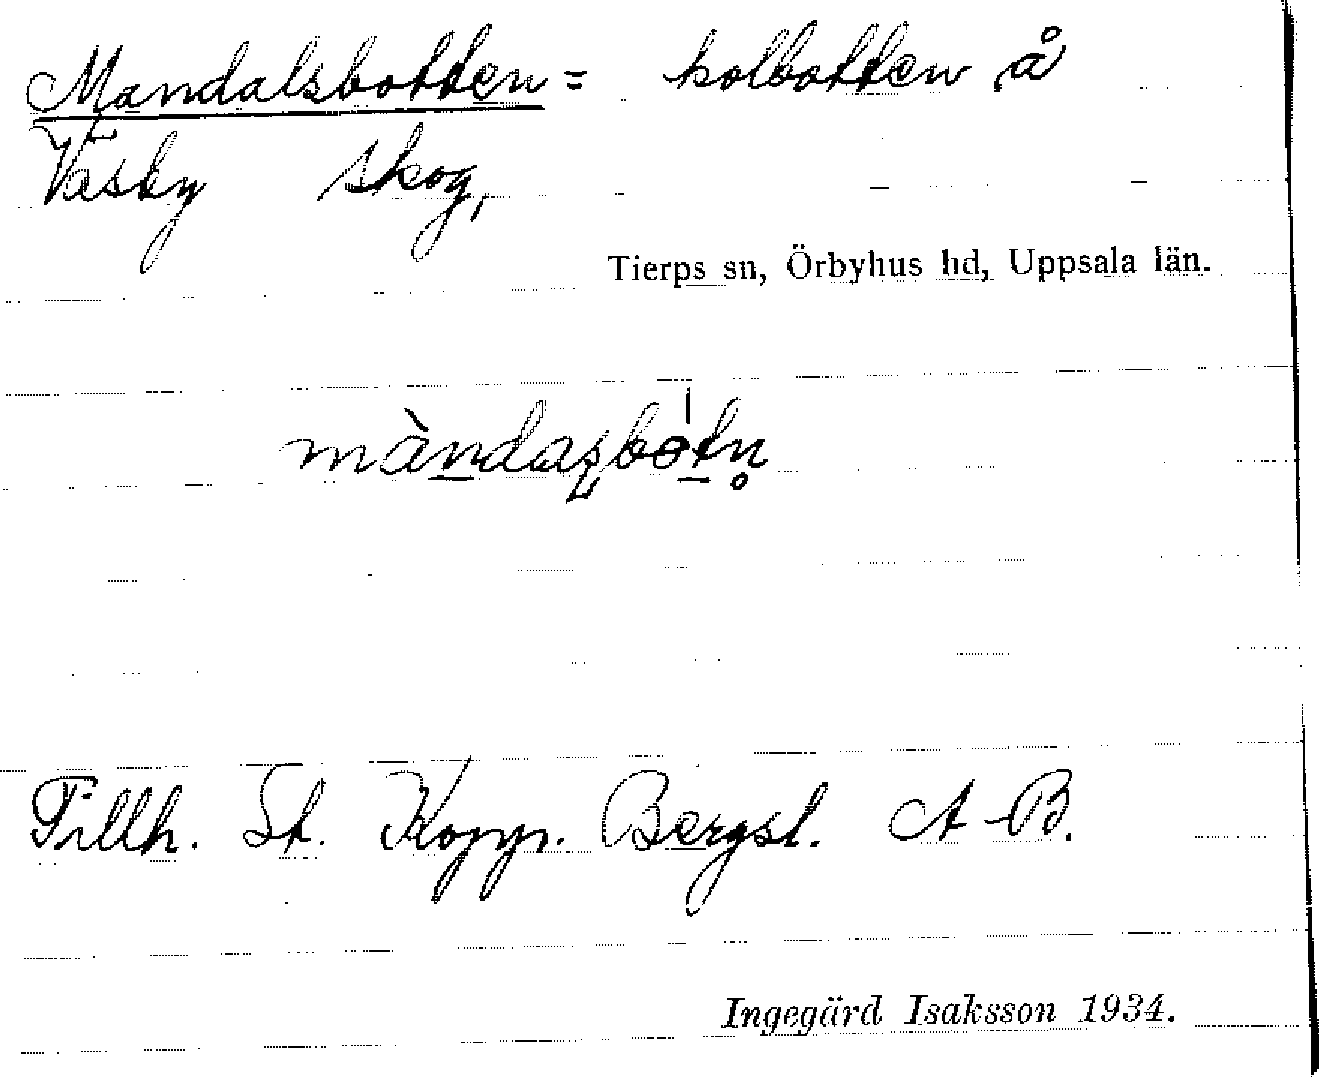 Mandalsbotten = kolbotten å
Väsby skog,
Tierps sn, Örbyhus hd, Uppsala län.
Tillh. St. Kopp. Bergsl. A-B.
Ingegärd Isaksson 1934.